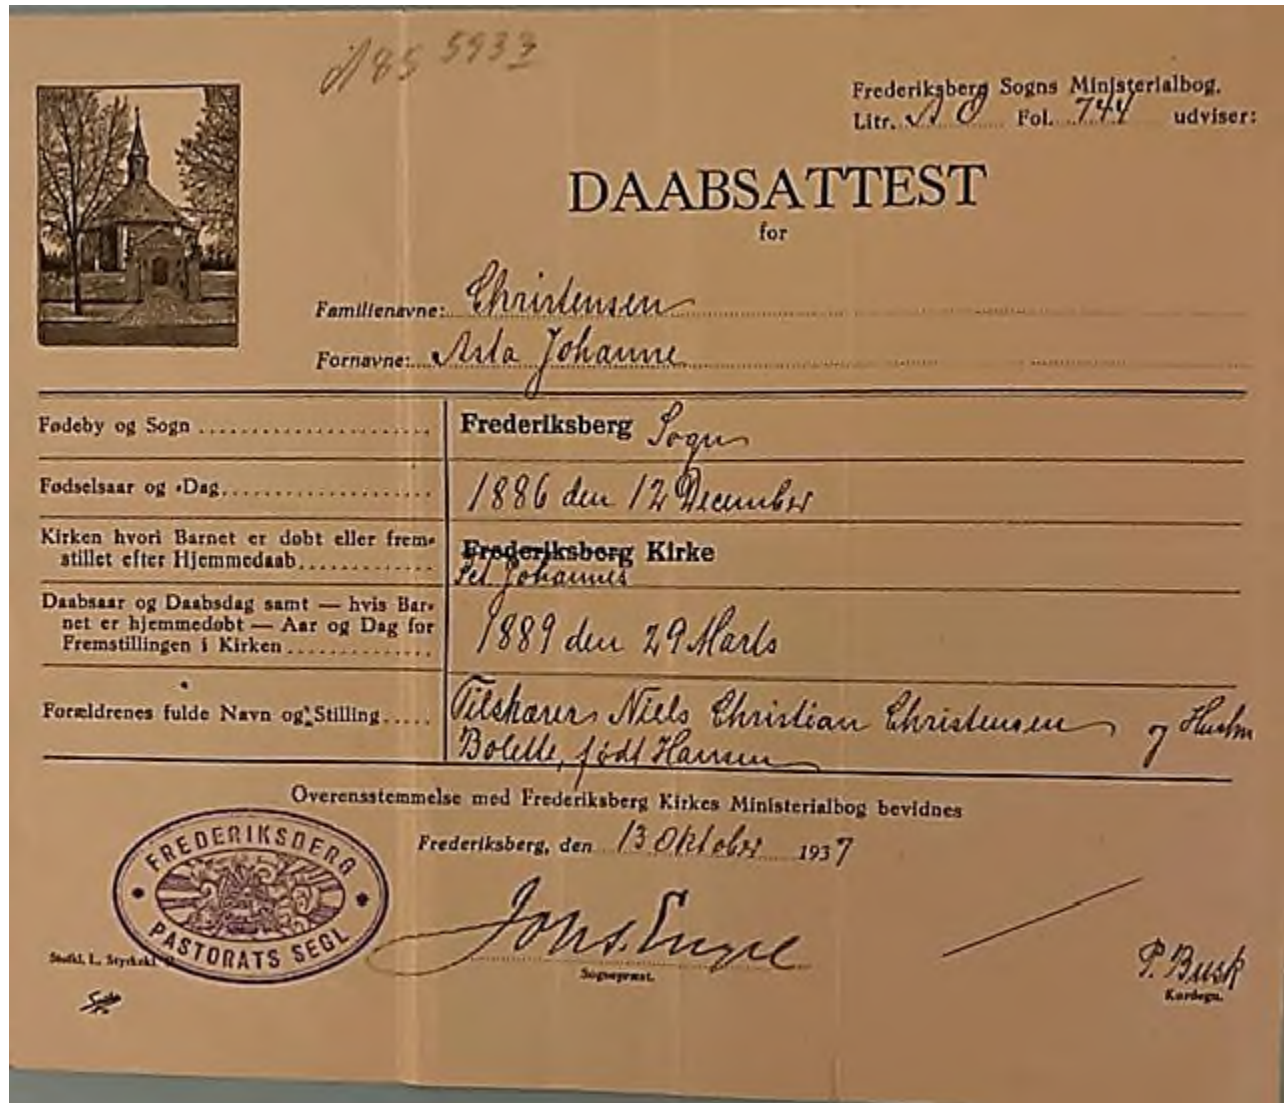 5933
Frederiksberg Sogns Ministerialbog.
Litr. Fol. 744 udviser:
DAABSATTEST
for
Familienavne: Christensen
Fornavne: Asta Johanne
Fødeby og Sogn Frederiksberg Sogn
Fødselsaar og -Dag 1886 den 12 December
Kirken hvori Barnet er døbt eller frem-
stillet efter Hjemmedaab Frederiksberg Kirke
Sct. Johannes
Daabsaar og Daabsdag samt — hvis Bar-
net er hjemmedøbt — Aar og Dag for
Fremstillingen i Kirken 1889 den 29 Marts
Forældrenes fulde Navn og Stilling Tilskærer Niels Christian Christensen og Hustru
Bolette, født Hansen
Overensstemmelse med Frederiksberg Kirkes Ministerialbog bevidnes
Frederiksberg, den 13 Oktober 1937
FREDERIKSBERG
PASTORATS SEGL
Johs. Engel
Sognepræst.
P. Busk
Kordegn.